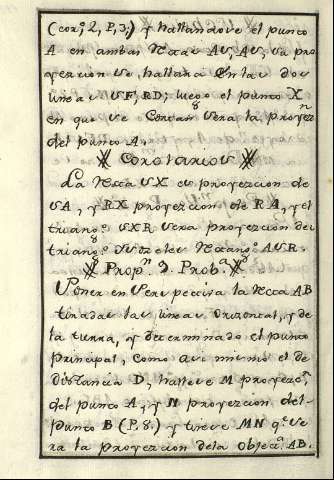 (coz.º 2, P, 3,) y hallandose el punto
A en ambas Rectas AS, AV, su pro
yeccion se hallara en las dos
lineas SF, RD; luego el punto X
en que se Cortan sera la proyez.n
del punto A.
Corolarios
La Recta SX es proyeccion de
SA, y RX proyeccion de RA, y el
triang.º SXR sera proyeccion del
triang.º ASR.
Prop.n 9. Prob.a
Poner en Perspectiva la Recta AB
tiradas las lineas Orizontal, y de
la tierra, y determinado el punto
Principal, como asi mismo el de
distancia D, hallese M proyez.n
del punto A, y N proyeccion del
punto B (P, 8.) y tirese MN q.e se
ra la proyeccion dela Objec.a AB.